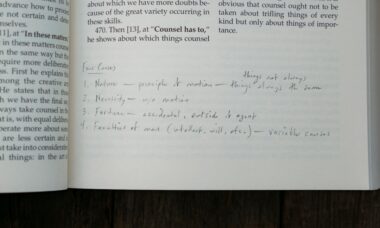 advance how to proce
are not certain and de
mselves.
1], at "In these matter
in these matters couns
n the same way but th
equire more deliberati
ss. First he explains th
mong the creative ar
He states that in thi
h we have the final s
ways take counsel in th
at is, with equal delibe
perate more about som
are less certain and
st take into considerati
al things: in the art o
about which we have more doubts be-
cause of the great variety occurring in
these skills.
470. Then [13], at "Counsel has to,"
he shows about which things counsel
obvious that counsel ought not to be
taken about trifling things of every
kind but only about things of impor-
tance.
Four Causes
things not always
1. Nature — principle of motion — things always the same
2. Necessity — w/o motion
3. Fortune — accidental, outside of agent
4. Faculties of man (intellect, will, etc.) — variable causes